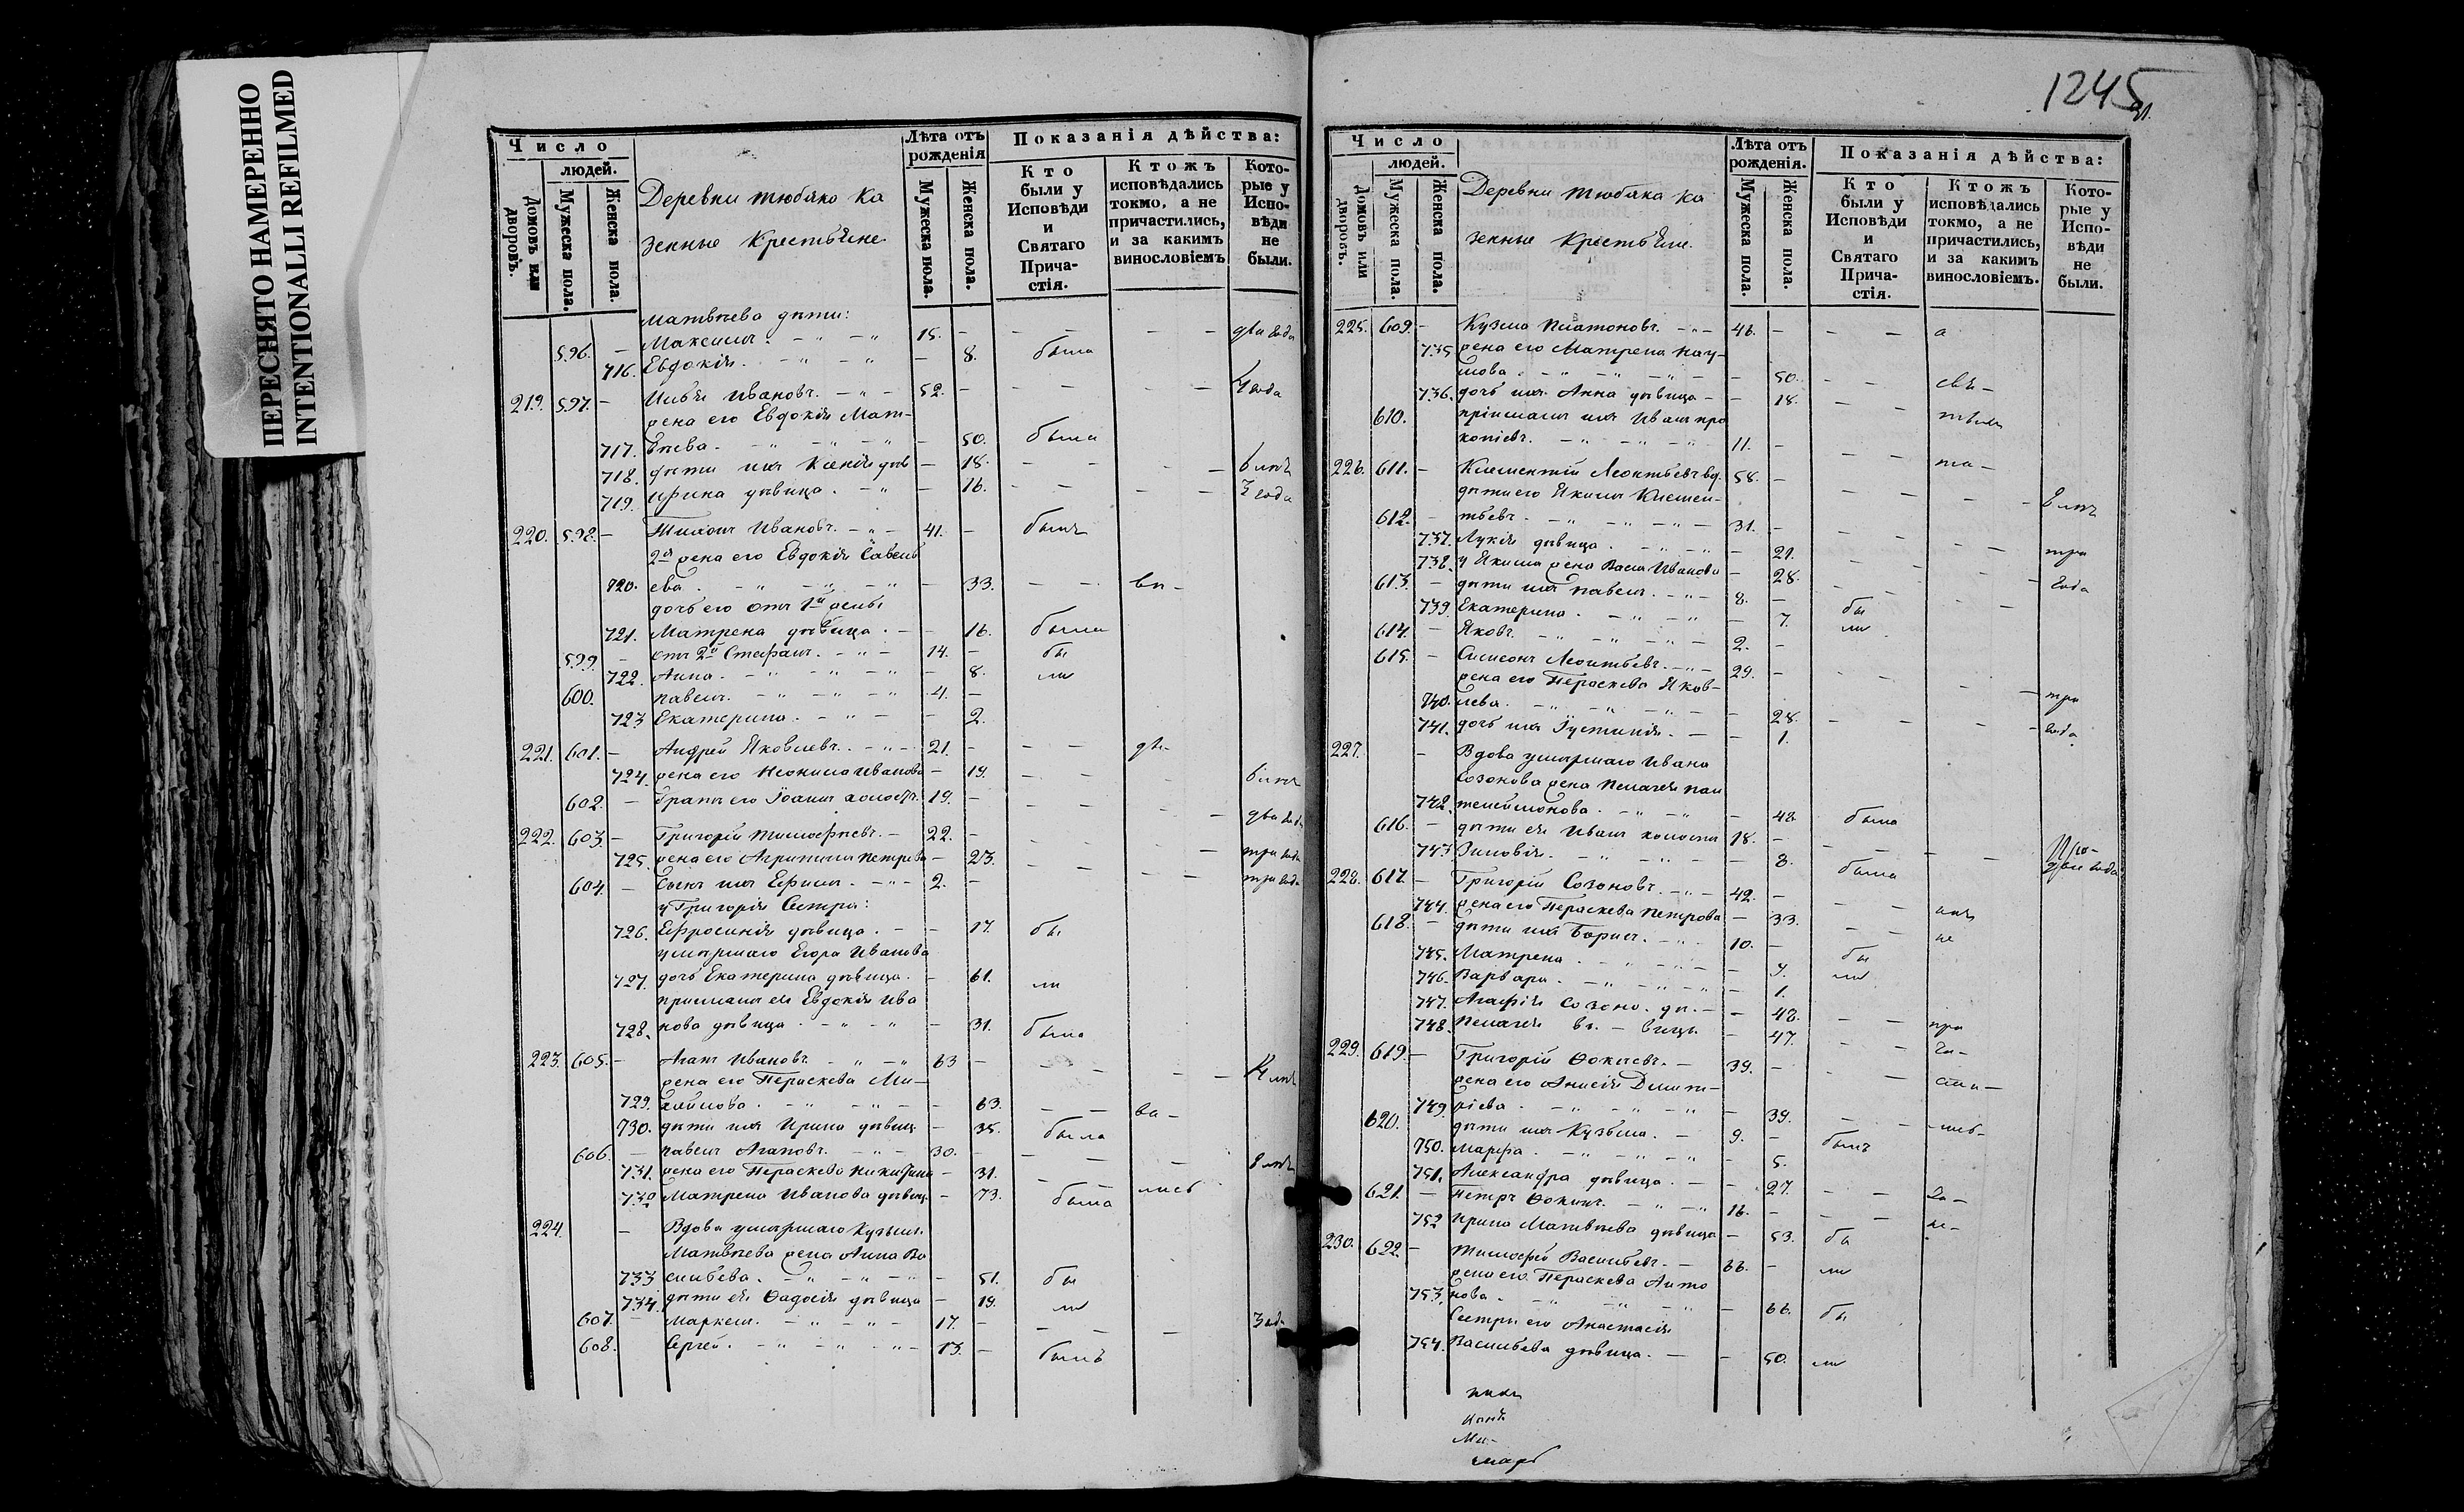 ПЕРЕСНЯТО НАМЕРЕННО
INTENTIONALLI REFILMED
Число
людей.
Домовъ или дворовъ.
Мужеска пола.
Женска пола.
Деревни Тюбяко Ка
зенные Крестьяне
Лѣта отъ рожденія
Мужеска пола.
Женска пола.
Показанія дѣйства:
Кто были у Исповѣди и Святаго Прича-стія.
Ктожъ исповѣдались токмо, а не причастились, и за какимъ винословіемъ
Кото-рые у Испо-вѣди не были.
Матвѣева дѣти:
596. – Максимъ 15. – два года
716. Евдокія – 8. была
219. 597. – Илья Ивановъ 52. – 4 года
жена его Евдокія Мат-
717. вѣева – 50. была
718. дѣти ихъ Ксенія дѣв – 18. 6 лѣтъ
719. Ирина дѣвица – 16. 3 года
220. 598. – Тихонъ Ивановъ 41. – былъ
2я жена его Евдокія Савель
720. ева – 33. вп-
дочь его отъ 1й жены
721. Матрена дѣвица – 16. была
599. – отъ 2й Стефанъ 14. – бы
722. Анна – 8. ли
600. Павелъ 4. –
723 Екатерина – 2.
221. 601. – Андрей Яковлевъ 21. –
724. жена его Неонила Иванова – 19. 6 лѣтъ
602. – братъ его Іоаннъ холостъ 19. – два года
222. 603. – Григорій Тимофѣевъ 22. – три года
725. жена его Агрипина Петрова – 23. три года
604. – сынъ ихъ Ефимъ 2. –
у Григорія Сестра:
726. Ефросинія дѣвица – 17. бы
умершаго Егора Иванова
727. дочь Екатерина дѣвица – 61. ли
пріимышъ ея Евдокія Ива
728. нова дѣвица – 31. была
223. 605. – Агапъ Ивановъ 63 – 4 лѣтъ
жена его Параскева Ми-
729. хайлова – 63.
730. дѣти ихъ Ирина дѣвиц – 35. была
606. – Павелъ Агаповъ 30. – 8 лѣтъ
731. жена его Параскева Никифирова – 31.
732 Матрена Иванова дѣвиц – 73. была
224. – Вдова умершаго Кузьмы
Матвѣева жена Анна Ва
733 сильева – 51. бы
734. дѣти ея Ѳадосія дѣвица – 19. ли
607. – Маркелъ 17. – 3 года
608. Сергѣй 13. – былъ
1245
Число
людей.
Домовъ или дворовъ.
Мужеска пола.
Женска пола.
Деревни Тюбяка Ка
зенные Крестьяне.
Лѣта отъ рожденія.
Мужеска пола.
Женска пола.
Показанія дѣйства:
Кто были у Исповѣди и Святаго Прича-стія.
Ктожъ исповѣдались токмо, а не причастились, и за какимъ винословіемъ.
Кото-рые у Испо-вѣди не были.
225. 609. – Кузма Платоновъ 46. – а
735 жена его Матрена Нау-
мова – 50. свъ-
736. дочь ихъ Анна дѣвица – 18.
610. пріимышъ ихъ Иванъ Про
копіевъ 11. –
226. 611. – Климентій Леонтьевъ вд. 58. – 8 лѣтъ
дѣти его Якимъ Клемен-
612. – тьевъ 31. – три
737. Лукія дѣвица – 21.
738. у Якима жена Васса Иванова – 28. года
613. – дѣти ихъ Павелъ 8. – бы
739. Екатерина – 7. ли
614. – Яковъ 2. –
615. – Симеонъ Леонтьевъ 29. – три
жена его Параскева Яков-
740. лева – 28. года
741. дочь ихъ Іустинія – 1.
227. – Вдова умершаго Ивана
Созонова жена Пелагея Пан
742. телеймонова – 48. была
616. – дѣти ея Иванъ холостъ 18. –
743 Зиновія – 8. была
228. 617. – Григорій Созоновъ 42. –
744. жена его Параскева Петрова – 33. не
618. – дѣти ихъ Борисъ 10. – бы
745. Матрена – ли
746. Варвара – 1.
747. Агафія Созоно. дѣ. – 48.
748. Пелагея въ. – вицы – 47.
229. 619. – Григорій Ѳокиевъ 39. –
жена его Анисія Димит-
749. ріева – 39.
620. дѣти ихъ Кузьма 9. – былъ
750. Марѳа – 5.
751. Александра дѣвица – 27.
621. – Петръ Ѳокинъ 16. –
752 Ирина Матвѣева дѣвица – 53. бы
230. 622. – Тимофей Васильевъ 66. – ли
жена его Параскева Анто
753. нова – 66. бы
Сестра его Анастасія
754. Васильева дѣвица – 50. ли